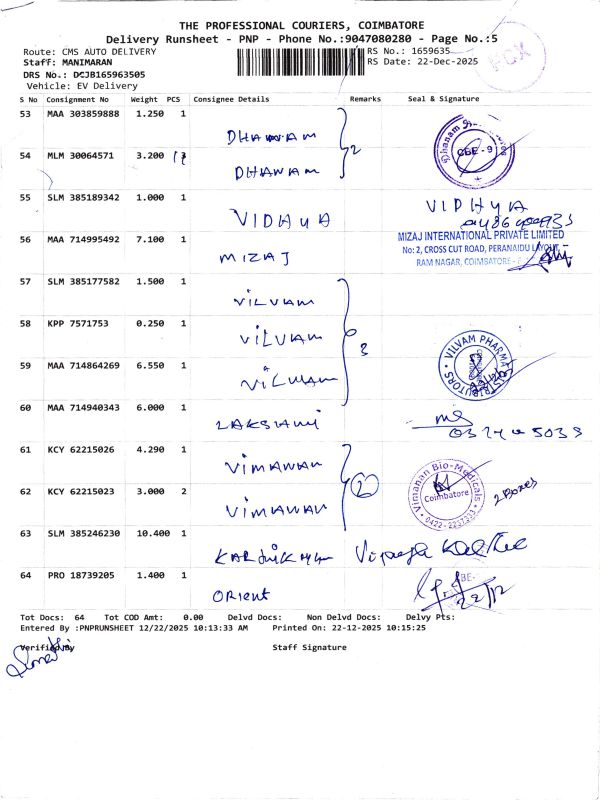 THE PROFESSIONAL COURIERS, COIMBATORE
Delivery Runsheet - PNP - Phone No.:9047080280 - Page No.:5
Route: CMS AUTO DELIVERY
RS No.: 1659635
Staff: MANIMARAN
RS Date: 22-Dec-2025
DRS No.: DCJB165963505
Vehicle: EV Delivery
POX
S No Consignment No Weight PCS Consignee Details Remarks Seal & Signature
53 MAA 303859888 1.250 1
DHANAM
54 MLM 30064571 3.200
2
DHANAM
CBE - 9
55 SLM 385189342 1.000 1
VIDHYA
VIDHYA
56 MAA 714995492 7.100 1
MIZAJ
MIZAJ INTERNATIONAL PRIVATE LIMITED
No: 2, CROSS CUT ROAD, PERANAIDU LAYOUT,
RAM NAGAR, COIMBATORE -
57 SLM 385177582 1.500 1
VILVAM
58 KPP 7571753 0.250 1
VILVAM
3
59 MAA 714864269 6.550 1
VILVAM
VILVAM PHARMA DISTRIBUTORS
60 MAA 714940343 6.000 1
LAKSHMI
61 KCY 62215026 4.290 1
VIMANAN
62 KCY 62215023 3.000 2
2
VIMANAN
Vimanan Bio-Medicals
Coimbatore
0422-2237333
2 Boxes
63 SLM 385246230 10.400 1
64 PRO 18739205 1.400 1
ORIENT
22/12
Tot Docs: 64 Tot COD Amt: 0.00 Delvd Docs: Non Delvd Docs: Delvy Pts:
Entered By :PNPRUNSHEET 12/22/2025 10:13:33 AM Printed On: 22-12-2025 10:15:25
Verified By Staff Signature